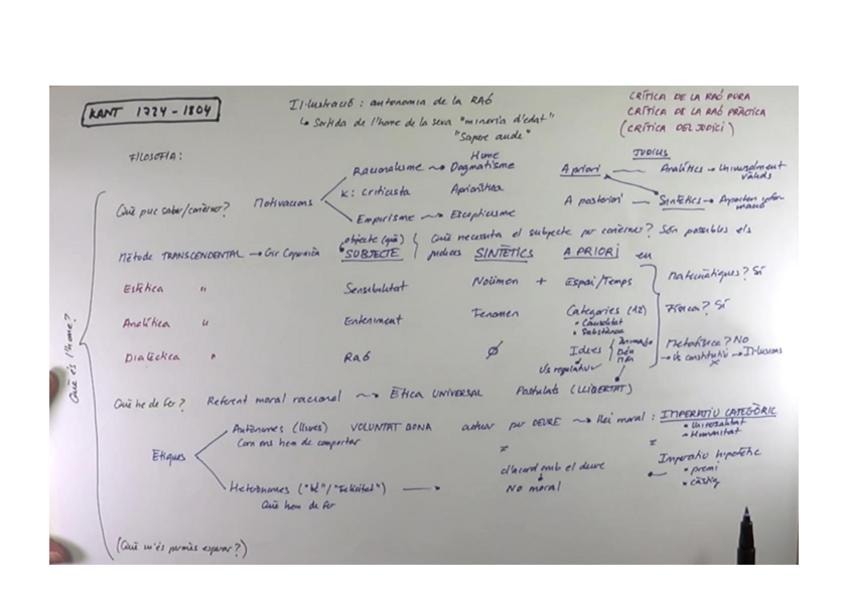 KANT 1724-1804
Il·lustració: autonomia de la RAÓ
↳ Sortida de l'home de la seva "minoria d'edat"
"Sapere aude"
CRÍTICA DE LA RAÓ PURA
CRÍTICA DE LA RAÓ PRÀCTICA
(CRÍTICA DEL JUDICI)
FILOSOFIA:
Què puc saber/conèixer?
Motivacions
Racionalisme → Dogmatisme
Hume
K: criticista
Apriorístic
Empirisme → Escepticisme
JUDICIS
A priori — Analítics → Universalment vàlids
A posteriori — Sintètics → Aporten
Mètode TRANSCENDENTAL → Gir Copernicà
objecte (què)
SUBJECTE
Què necessita el subjecte per conèixer? Són possibles els
judicis SINTÈTICS A PRIORI en
Estètica "
Sensibilitat
Noümen + Espai/Temps
Matemàtiques? Sí
Analítica "
Enteniment
Fenomen
Categories (12)
• Causalitat
• Substància
Física? Sí
Dialèctica "
RAÓ
Ø
Idees
Ànima
Déu
Món
Ús regulatiu
Metafísica? No
→ Ús constitutiu → Il·lusions
Què és l'home?
Què he de fer?
Referent moral racional → Ètica UNIVERSAL
Postulats (LLIBERTAT)
Ètiques
Autònomes (lliures)
Com ens hem de comportar
VOLUNTAT BONA
actuar per DEURE → Llei moral: IMPERATIU CATEGÒRIC
• Universalitat
• Humanitat
≠
≠
d'acord amb el deure
No moral
Imperatiu hipotètic
• premi
• càstig
Heterònomes ("bé"/"Felicitat")
Què hem de fer
(Què m'és permès esperar?)